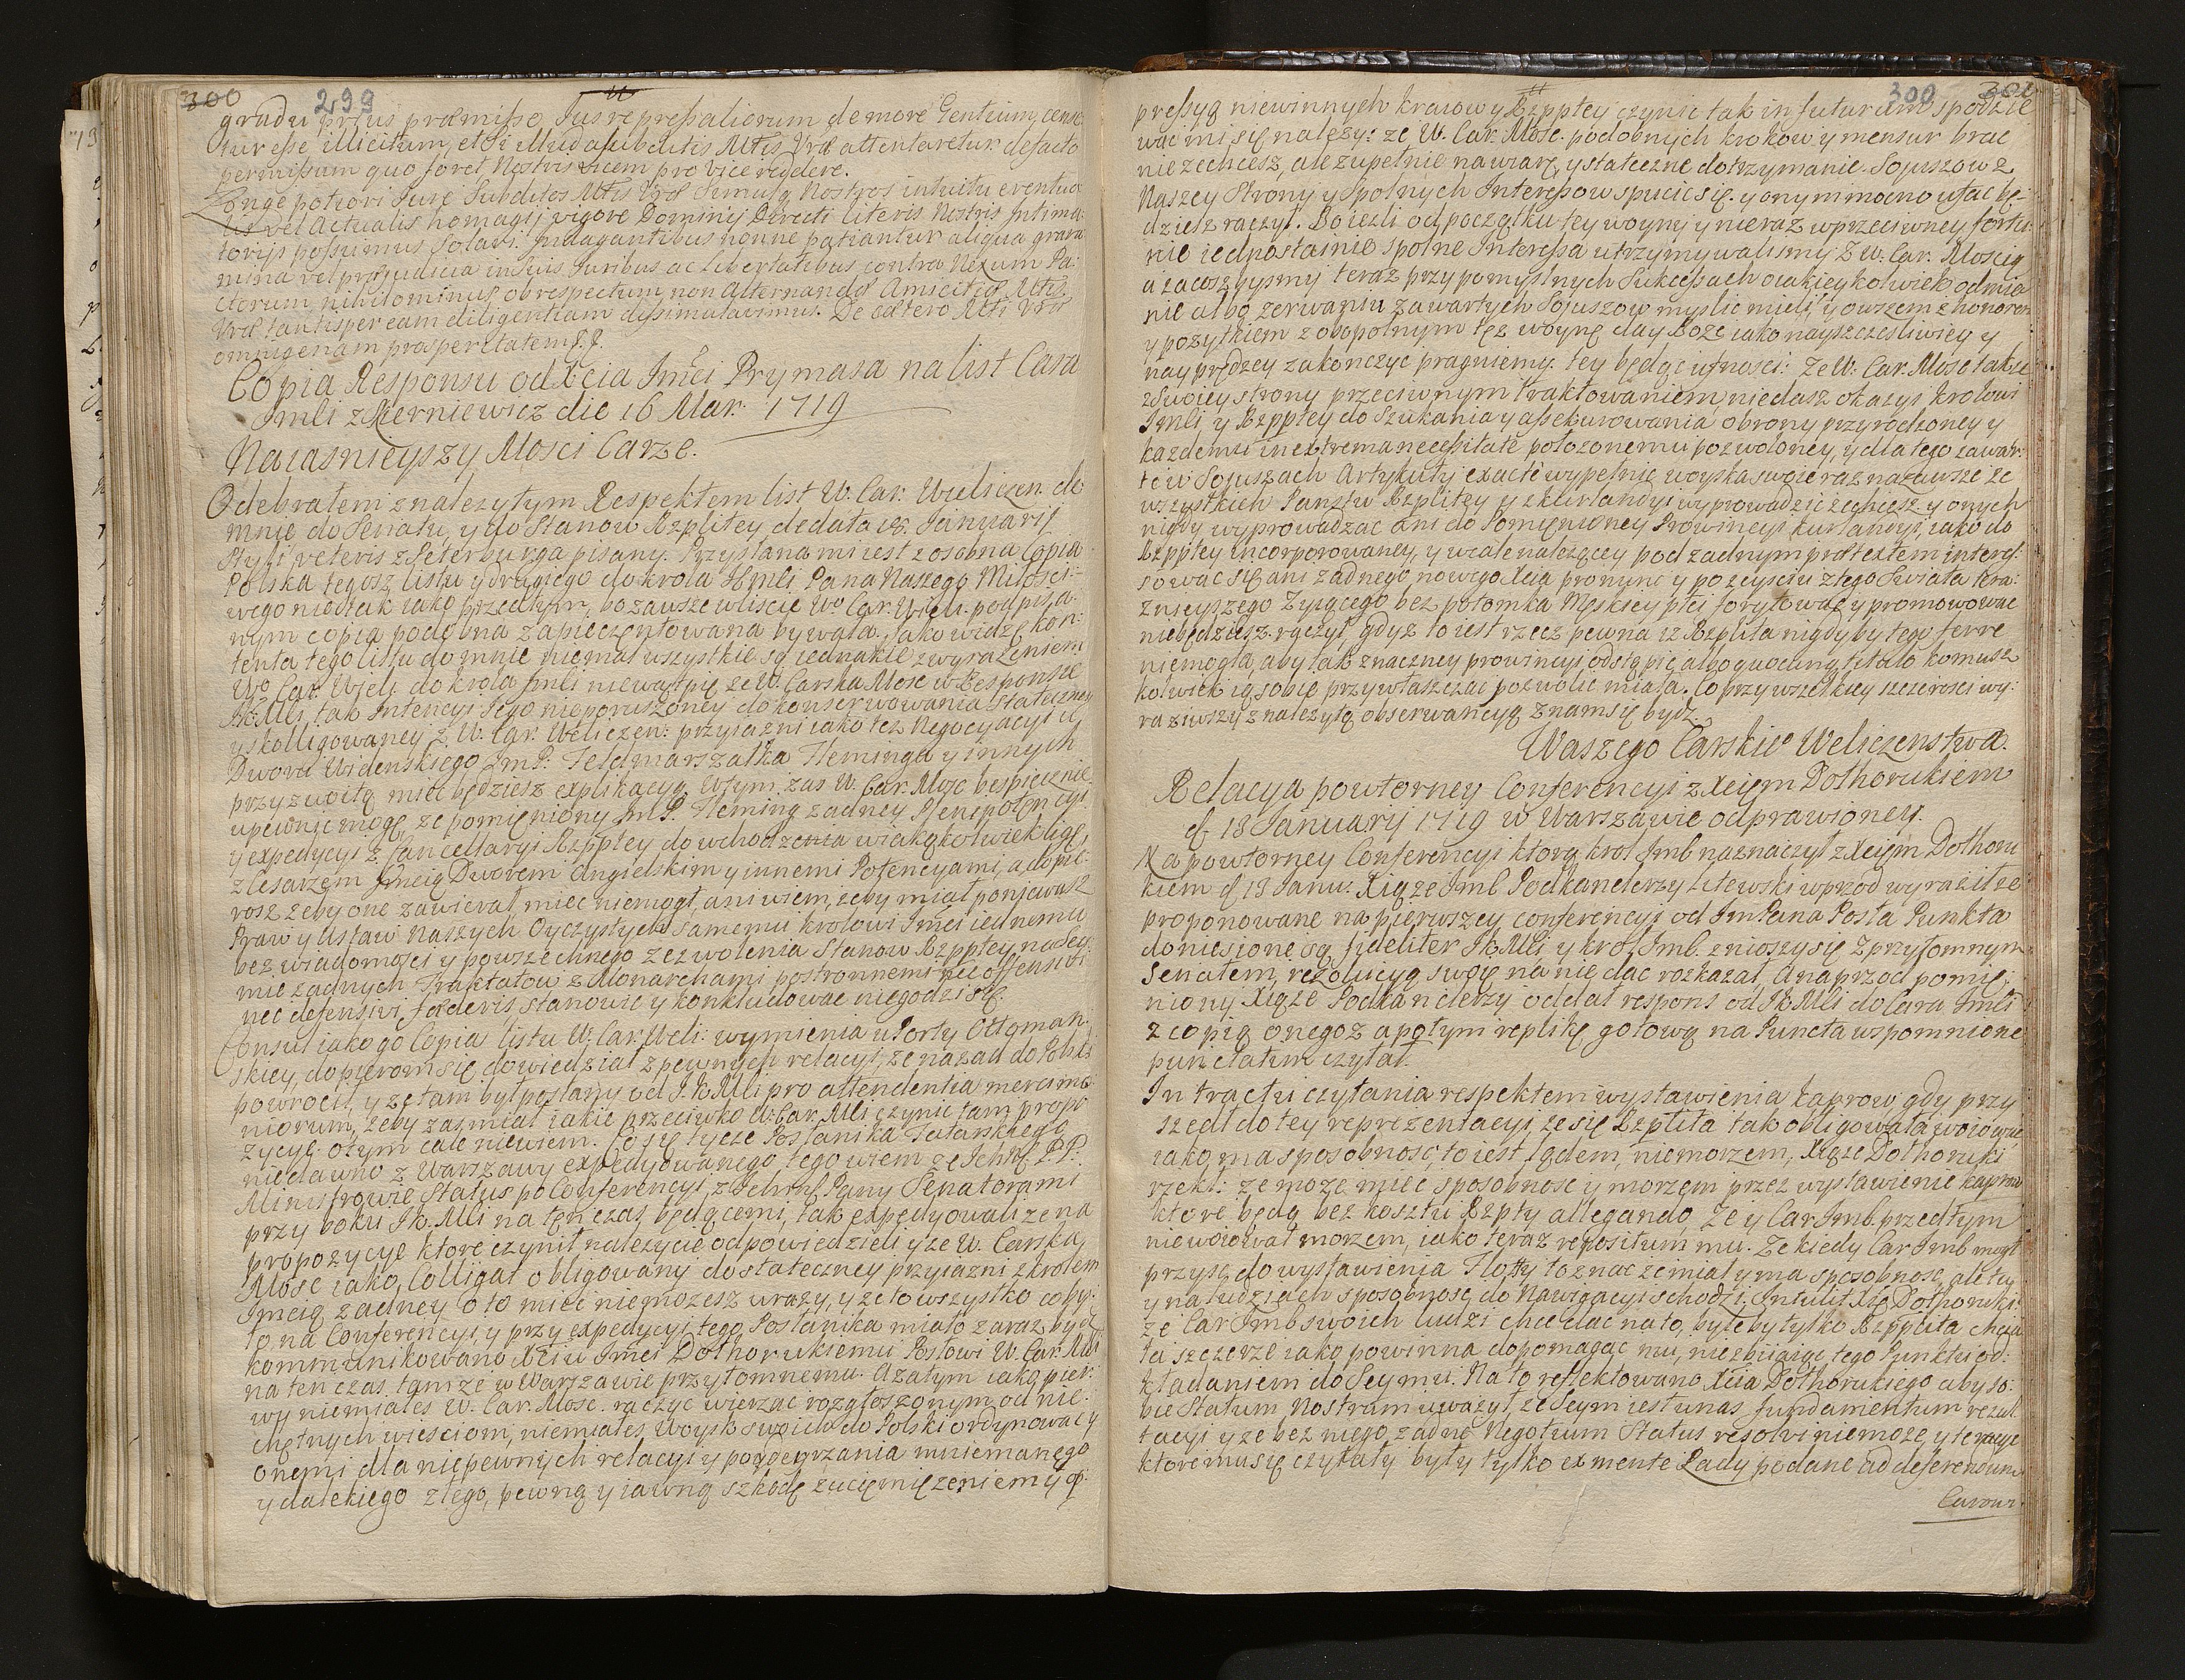 300 299
gradu prius præmisso, Jus repressaliorum de more Gentium, cense
tur esse illicitum, etsi illud a subditis Mtis Vræ attentaretur de facto
permissum quo foret Nostris vicem pro vice reddere.
Longe potiori Jure Subditos Mtis Vræ simulq Nostros intuitu eventua
lis vel Actualis homagij vigore Dominij Directi literis Nostris Intima
torijs possumus Solari. indagantibus nonne patiantur aliqua grava
mina vel præjudicia in suis Juribus ac libertatibus contra Nexum Pa:
ctorum, nihilominus ob respectum non Alternandæ Amicitiæ Mtis
Vræ tantisper eam diligentiam dissimulavimus. De cætero Mti Vræ
omnigenam prosperitatem &.
Copia Responsu od Xcia Jmci Prymasa na list Cara
Jmli z Skierniewicz die 16 Mar. 1719
Naiasnieyszy Mosci Carze.
Odebrałem z nalezytym Respektem list W. Car. Wieliczen. do
mnie do Senatu, y do Stanow Rzplitey de data 18. Januarij
Styli veteris z Peterburga pisany. Przysłana mi iest z osobna Copia
Polska tegosz listu y drugiego do krola Jmli Pana Naszego Miłosci:
wego nie tak iako przedtym, bo zawsze w liscie Wo Car. Wieli. podpisa
nym copia podobna zapieczętowana bywała. Jako widzę kon:
tenta tego listu do mnie niemal wszystkie są iednakie z wyrazeniem
Wo Car. Wieli. do krola Jmli niewątpię ze W. Carska Mosc w Responsie
JkMli, tak Intencyi Jego nieporuszoney do konserwowania Stateczney
y skolligowaney z W. Car. Weliczen: przyiazni iako tez Negocyacyi u
Dworu Widenskiego JmP. Feldmarszałka Fleminga y innych
przyzwoitą miec będziesz explikacyą. W tym zas W. Car. Mosc bespiecznie
upewnic mogę, ze pomięniony JmP. Fleming zadney Plenipotencyi
y expedycyi z Cancellaryi Rzpptey do wchodzenia w iakąkolwiek ligę,
z Cesarzem Jmcią Dworem Angielskim y innemi Potencyami, a dopie:
rosz zeby one zawierał, miec niemogł, ani wiem, zeby miał poniewasz
Praw y Ustaw Naszych Oyczystych samemu krolowi Jmci iednemu
bez wiadomosci y powszechnego zezwolenia Stanow Rzpptey na Sey:
mie zadnych Traktatow z Monarchami postronnemi nec offensivi
nec defensivi fæderis, stanowic y konkludowac niegodzi się.
Consul iako go Copia listu W. Car. Weli: wymienia u Porty Ottoman
skiey, dopierom się dowiedział z pewnych relacyi, ze nazad do Polski
powrocił, y ze tam był posłany od J.k.Mli pro attendentia mercimo
niorum, zeby zas miał iakie przeciwko W. Car. Mli czynic tam propo
zycye. o tym cale niewiem. Co się tycze Posłanika Tatarskiego
niedawno z Warszawy expedyowanego, tego wiem ze Ichmc PP.
Ministrowie Status po Conferencyi, z Ichmc Pany Senatorami
przy boku Jk.Mli na ten czas będącemi, tak expedyowali ze na
propozycye ktore czynił nalezycie odpowiedzieli y ze W. Carska
Mosc iako, Colligat obligowany do stateczney przyiazni z krolem
Jmcią zadney o to miec niemozesz urazy, y ze to wszystko coby:
ło na Conferencyi, y przy expedycyi tego Posłanika miało zaraz byc
kommunikowano Xciu Jmci Dolhorukiemu Posłowi W. Car. Mli
na ten czas tamze w Warszawie przytomnemu. A zatym iako pier:
wy niemiałes W. Car. Mosc. raczyc wierzac rozgłoszonym od nie:
chętnych wiesciom, niemiałes, Woysk swoich do Polski ordynowac y
onemi dla niepewnych relacyi y podegrzania mniemanego
y dalekiego złego, pewną y iawną szkodę z uciemięzeniem y op:
300 301
pressyą niewinnych kraiow y Rzpptey czynic tak in futurum spodzie
wac mi się nalezy: ze W. Car. Mosc. podobnych krokow y mensur brac
niezechcesz, ale zupełnie na wiarę, y stateczne dotrzymanie Sojuszow z
Naszey Strony y Spolnych Interessow spuscic się. y onym mocno ufac bę-
dziesz raczył. Bo iezli od początku tey woyny y nieraz w przeciwney fortu
nie iednostaynie spolne Interessa utrzymywalismy z W. Car. Moscią
a zacoszbysmy teraz przy pomyslnych Sukcessach o iakieykolwiek odmia
nie albo zerwaniu zawartych Sojuszow myslic mieli, y owszem z honorem
y pozytkiem z obopolnym tęz woynę day Boze iako nayszczesliwiey y
nayprędzey zakonczyc pragniemy. tey będąc ufnosci: Ze W. Car. Mosc takze
z Swoiey strony przeciwnym traktowaniem, niedasz okazyi krolowi
Jmli y Rzpptey do Szukania y assekurowania obrony przyrodzoney y
kazdemu in extrema necessitate połozonemu pozwoloney, y dla tego zawar:
te w Sojuszach Artykuły exacte wypełnic woyska swoie raz nazawsze ze
wszystkich Panstw Rzplitey y z kurlandyi wyprowadzic zechcesz y onych
nigdy wyprowadzac ani do Pomięnioney Prowincyi kurlandyi, iako do
Rzpptey incorporowaney, y wcale nalezącey pod zadnym prætextem interes:
sowac się ani zadnego nowego Xcia promync y po zeysciu z tego Swiata tera:
znieyszego zyiącego bez potomka Męskiey płci forytowac y promowowac
niebędziesz. rączył, gdyz to iest rzecz pewna iz Rzplita nigdy by tego ferre
niemogła, aby tak znaczney prowincyi odstąpic, albo quocunq titulo komusz
kolwiek ią sobie przywłaszczac pozwolic miała. Co przy wszelkiey szczerosci wy:
raziwszy z nalezytą obserwancyą znam się bydz.
Waszego Carskieo Weliczenstwa.
Relacya powtorney Conferencyi z Xciem Dolhorukiem
d 18 Januarij 1719 w Warszawie odprawioney.
Na powtorney Conferencyi ktorą krol Jmb naznaczył z Xciem Dolhoru
kiem d 18 Janu. Xiąze Jmb Podkanclerzy Litewski wprzod wyraził ze
proponowane na pierwszey conferencyi od ImPana Posła Punkta
doniesione są fideliter Jk.Mli y krol Jmb. znioszy się z przytomnym
Senatem, rezolucyą swoię na nie dac rozkazał, a naprzod pomię:
niony Xiąze Podkanclerzy oddał respons od Jk.Mli do Cara Jmli
z copią onegoz a potym replikę gotową na Puncta wspomnione
punctatim czytał.
In tractu czytania respektem wystawienia kaprow, gdy przy
szedł do tey reprezentacyi, ze się Rzplita tak obligowała woiowac
iako ma sposobnosc, to iest, lądem, niemorzem, Xiąze Dolhoruki
rzekł: ze moze miec sposobnosc y morzem przez wystawienie kaprow
ktore będą bez kosztu Rzpty allegando, Ze y Car Jmb. przedtym
niewoiował morzem, iako teraz repositum mu. Ze kiedy Car Jmb mogł
przysc do wystawienia Flotty to znac ze miał y ma sposobnosc, ale tu
y na ludziach sposobnosc do Nawigacyi schodzi. Intulit Xże Dolhoruki:
ze Car Jmb swoich ludzi chce dac na to, byleby tylko Rzpplita chcia
ła szczerze iako powinna dopomagac mu, niezbijaiąc tego Punktu od:
kładaniem do Seymu. Na to reflektowano Xcia Dolhorukiego aby so:
bie Statum Nostrum uwazył, ze Seym iest u nas fundamentum rezul
tacyi y ze bez niego zadne Negotium Status resolvi niemoze, y te racye
ktore mu się czytały były tylko ex mente Rady podane ad deferendum
Carowi.